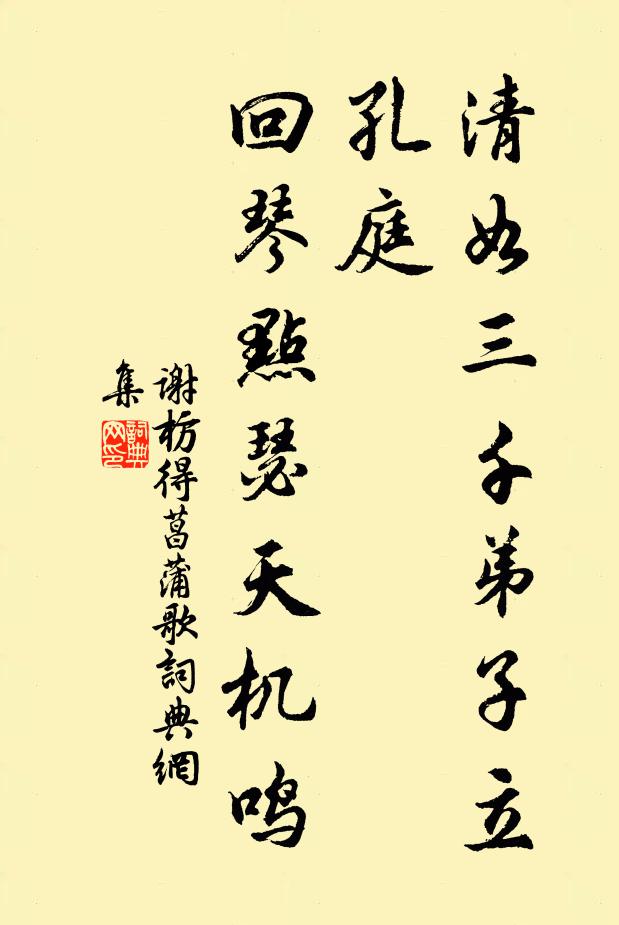 清如三千弟子立
孔庭
回琴點瑟天机鸣
谢枋得菖蒲歌詞典網
集
詞典
网印